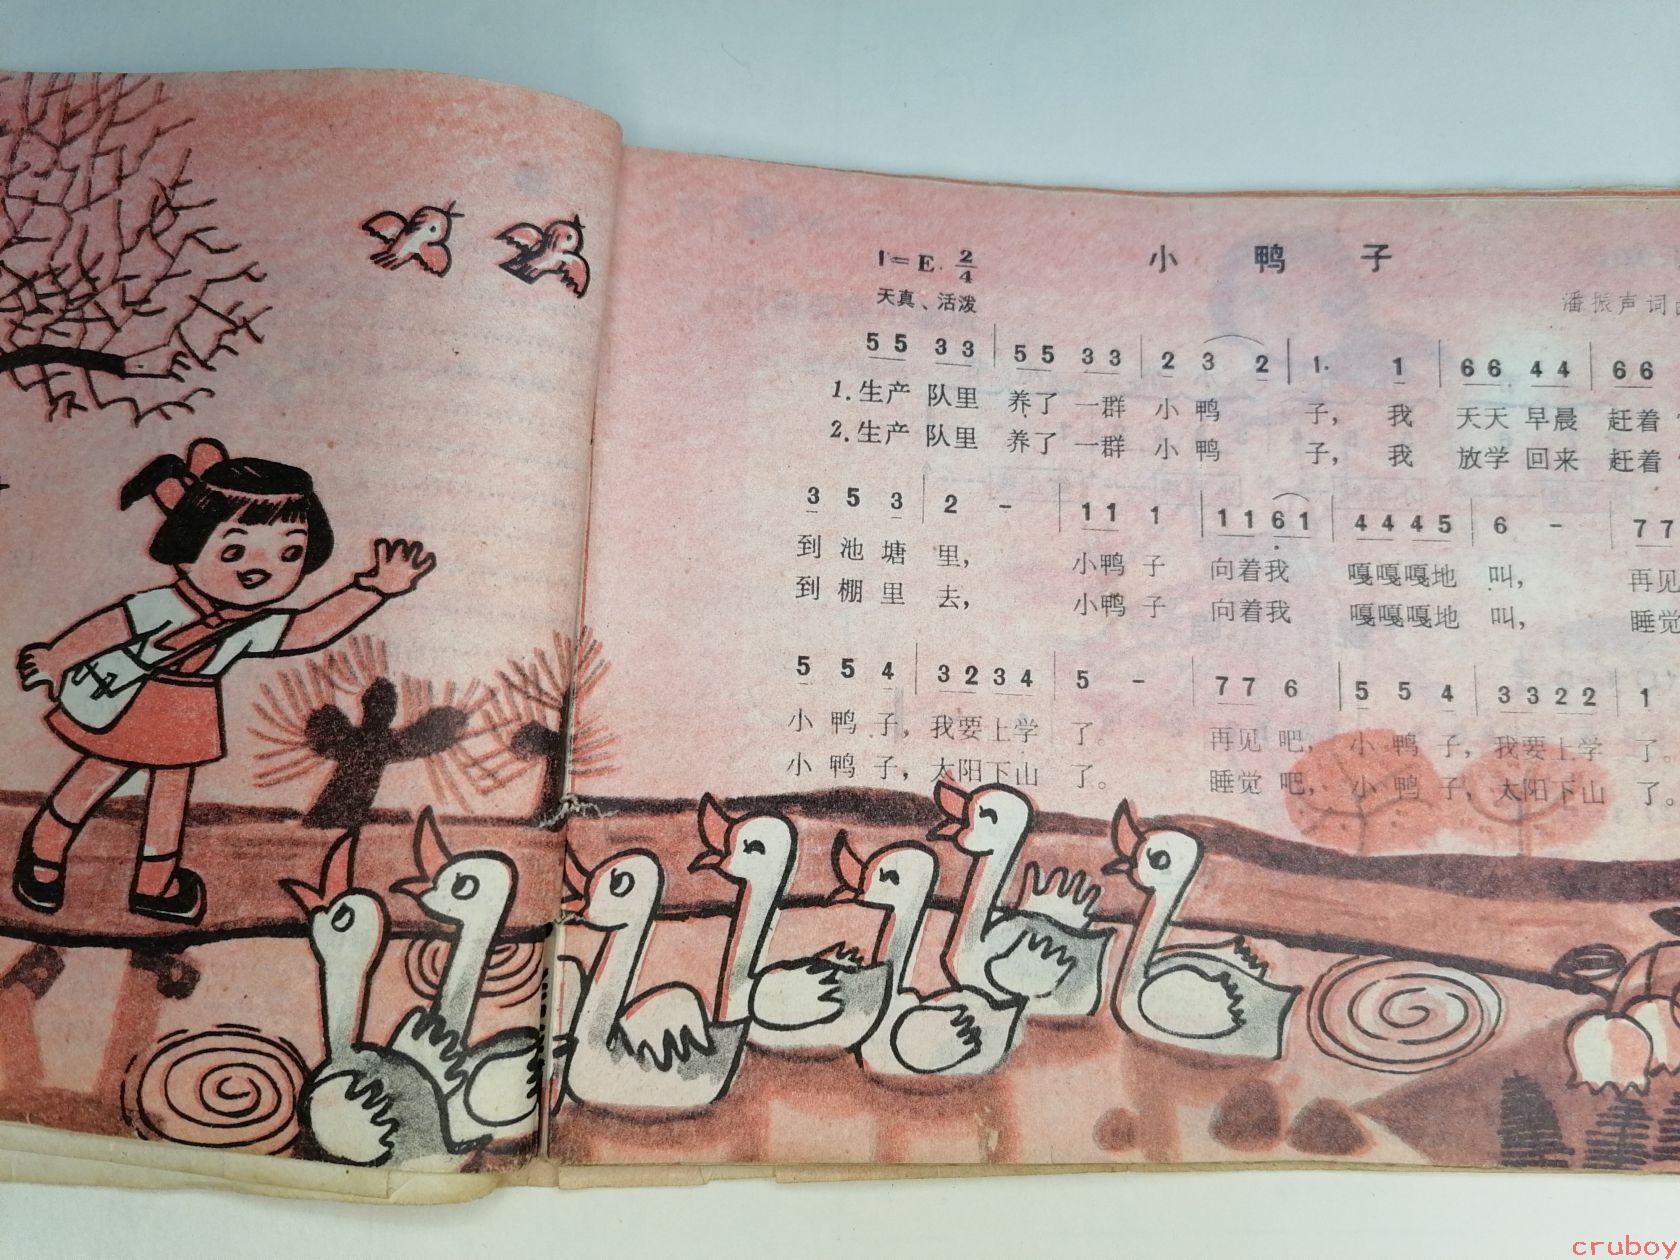 小 鸭 子
1=E 2/4
天真、活泼
潘振声词
5 5 3 3 | 5 5 3 3 | 2 3 2 | 1. 1 | 6 6 4 4 | 6 6
1.生产 队里 养了 一群 小 鸭 子, 我 天天 早晨 赶着
2.生产 队里 养了 一群 小 鸭 子, 我 放学 回来 赶着
3 5 3 | 2 - | 1 1 1 | 1 1 6 1 | 4 4 4 5 | 6 - | 7 7
到 池 塘 里, 小鸭 子 向着我 嘎嘎嘎地 叫, 再见
到 棚 里 去, 小鸭 子 向着我 嘎嘎嘎地 叫, 睡觉
5 5 4 | 3 2 3 4 | 5 - | 7 7 6 | 5 5 4 | 3 3 2 2 | 1
小 鸭 子, 我要上学 了。 再见 吧, 小 鸭 子, 我要上学 了。
小 鸭 子, 太阳下山 了。 睡觉 吧, 小 鸭 子, 太阳下山 了。
cruboy